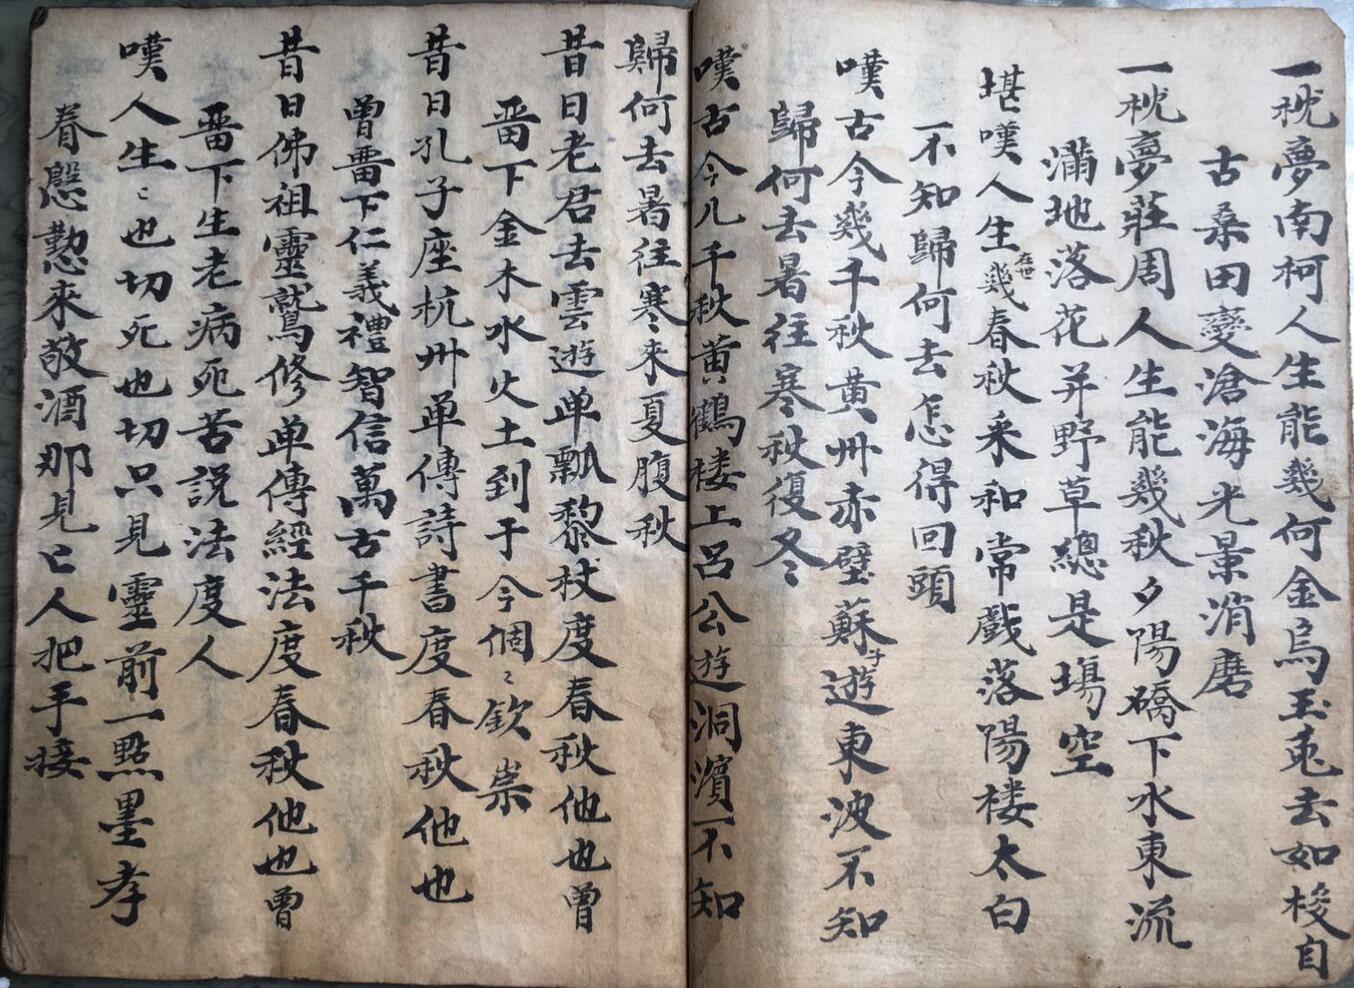 一枕夢南柯人生能幾何金烏玉兎去如梭自
古桑田變滄海光景消磨
一枕夢莊周人生能幾秋夕陽橋下水東流
滿地落花并野草總是塲空
堪嘆人生在世幾春秋来和常戲落陽楼太白
不知歸何去怎得回頭
嘆古今幾千秋黄州赤壁蘇子遊東波不知
歸何去暑往寒秋復冬
嘆古今几千秋黄鶴楼上呂公遊洞濱不知
歸何去暑往寒來夏腹秋
昔日老君去雲遊单瓢黎杖度春秋他也曾
畱下金木水火土到于今個〻欽崇
昔日孔子座杭州单傳詩書度春秋他也
曾畱下仁義禮智信萬古千秋
昔日佛祖靈鷲修单傳經法度春秋他也曾
畱下生老病死苦説法度人
嘆人生〻也切死也切只見靈前一點墨孝
眷慇懃來敬酒那見亡人把手接